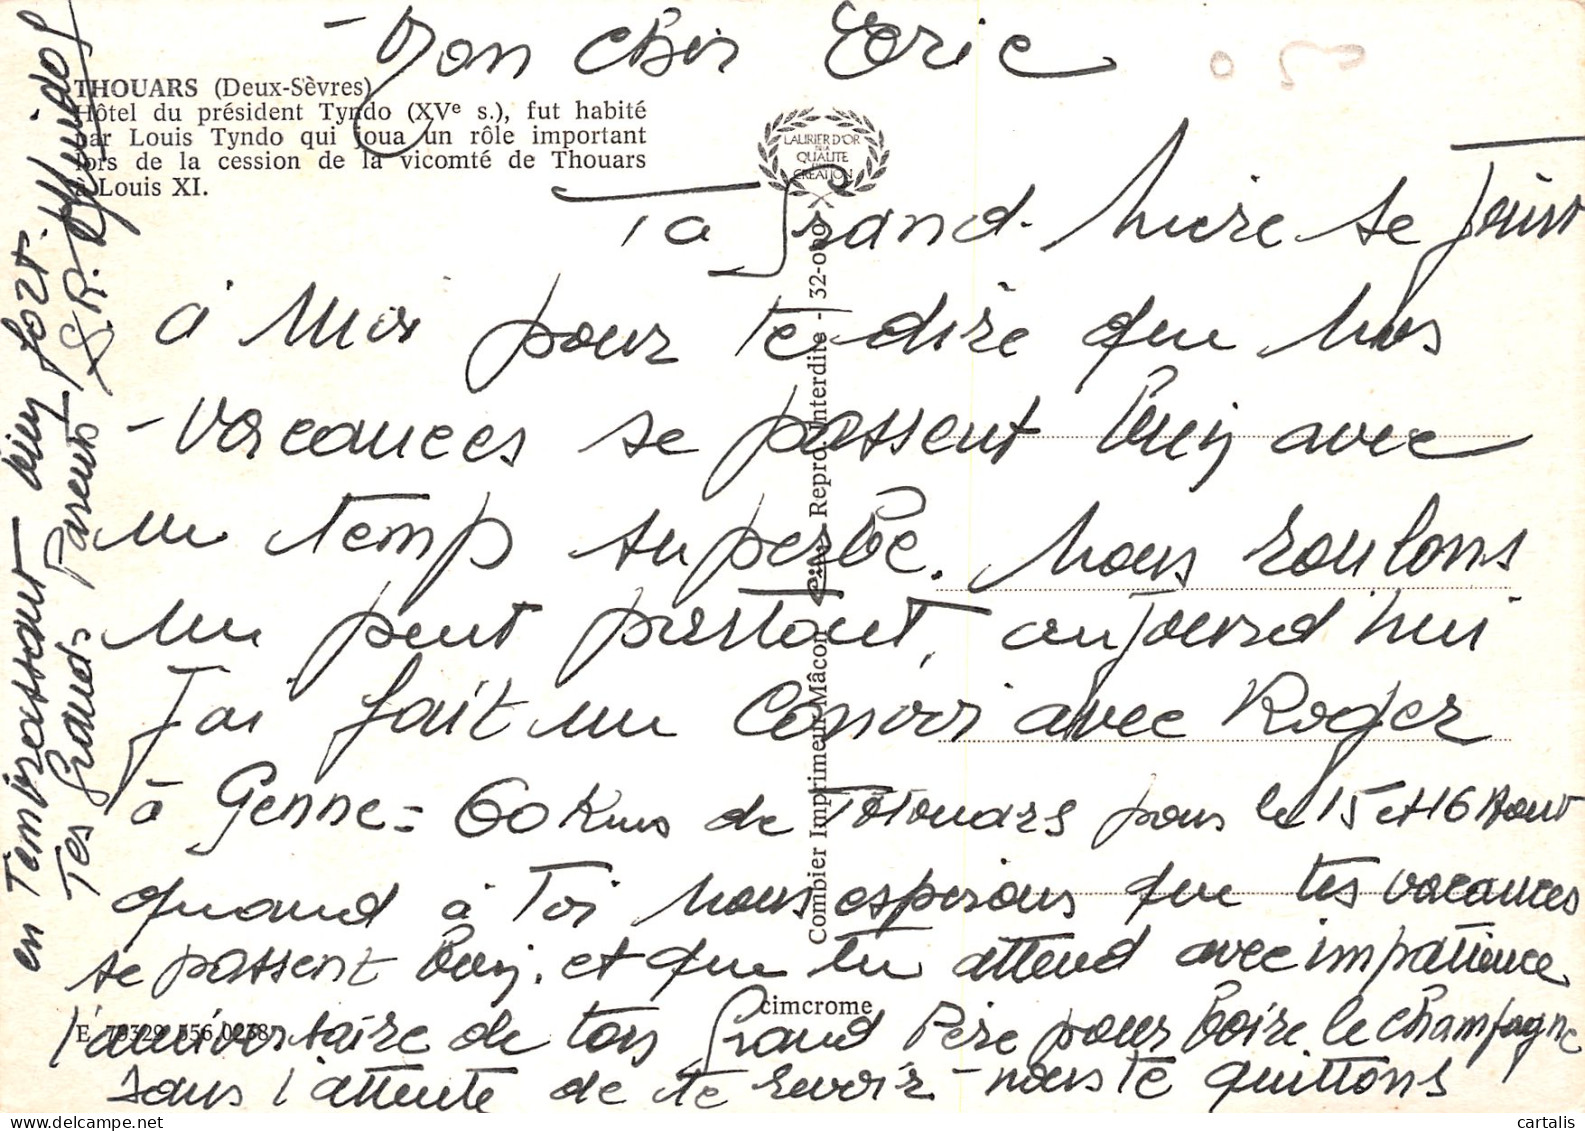 - Mon cher Eric
THOUARS (Deux-Sèvres)
Hôtel du président Tyndo (XVe s.), fut habité
par Louis Tyndo qui joua un rôle important
lors de la cession de la vicomté de Thouars
à Louis XI.
LAURIER D'OR
DE LA
QUALITE
CREATION
Ta Grand-Mère se joint
à Moi pour te dire que Nos
-Vacances se passent bien avec
un Temp superbe. Nous roulons
un peut partout, aujourd'hui
J'ai fait un Convoi avec Roger
à Genne = 60 Kms de Thouars pour le 15 et 16 Aout
quand à Toi Nous esperons que tes vacances
se passent bien. et que tu attend avec impatience
l'anniversaire de ton Grand Père pour boire le Champagne
Dans l'attente de te revoir - nous te quittons
en T'embrassant bien fort.
Tes Grands Parents
Combier Imprimeur Mâcon Cim Repro. Interdite - 32-009
cimcrome
E. 79329 556.0238
cartalis